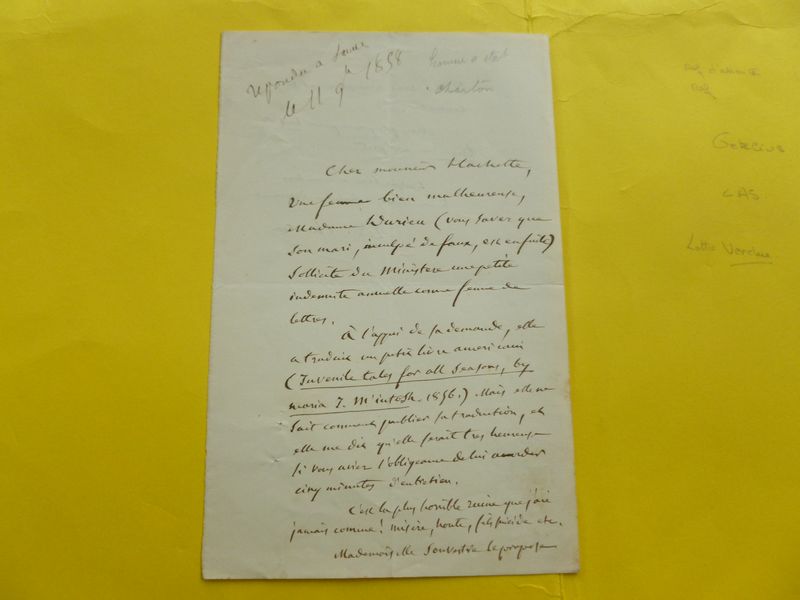 répondu a
le 11 9bre 1858
Charton
Cher monsieur Hachette,
Une femme bien malheureuse,
Madame Durieu (vous savez que
son mari, inculpé de faux, est en fuite)
sollicite du Ministère une petite
indemnité annuelle comme femme de
lettres.
À l'appui de sa demande, elle
a traduit un petit livre américain
(Juvenile tales for all seasons, by
maria J. M'intosh. 1856.) Mais elle ne
sait comment publier sa traduction, et
elle me dit qu'elle serait très heureuse
si vous aviez l'obligeance de lui accorder
cinq minutes d'entretien.
C'est la plus horrible ruine que j'aie
jamais connue! misère, honte, etc.
Mademoiselle Souvestre se propose
LAS